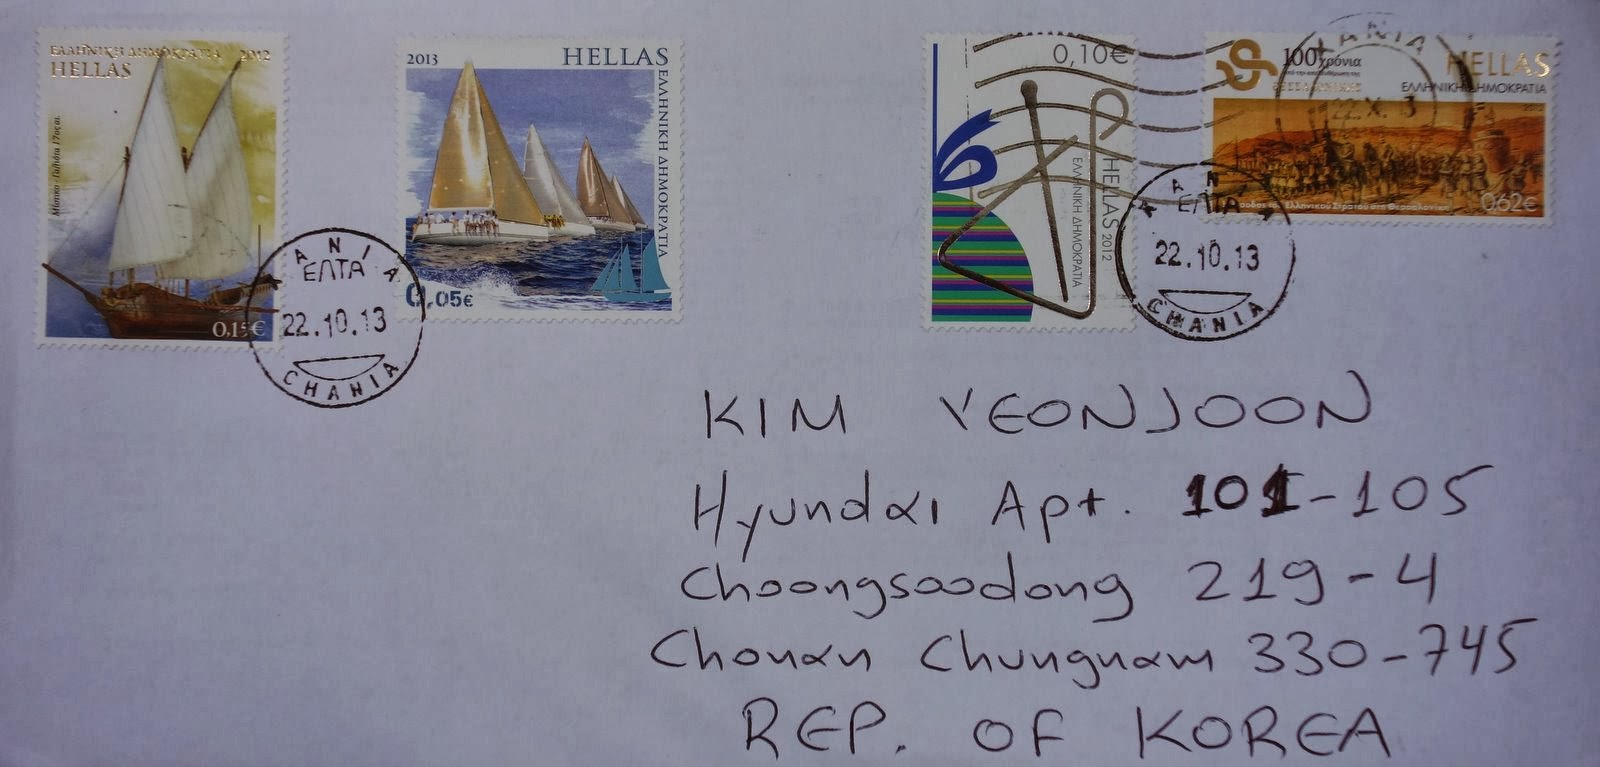 ΕΛΛΗΝΙΚΗ ΔΗΜΟΚΡΑΤΙΑ 2012
HELLAS
17ος αι.
0,15€
2013 HELLAS
ΕΛΛΗΝΙΚΗ ΔΗΜΟΚΡΑΤΙΑ
0,05€
ΧΑΝΙΑ
ΕΛΤΑ
22.10.13
CHANIA
0,10€
HELLAS 2012
ΕΛΛΗΝΙΚΗ ΔΗΜΟΚΡΑΤΙΑ
100 χρόνια
από την απελευθέρωση της
ΘΕΣΣΑΛΟΝΙΚΗΣ
HELLAS
ΕΛΛΗΝΙΚΗ ΔΗΜΟΚΡΑΤΙΑ
Ελληνικού Στρατού στη Θεσσαλονίκη
0,62€
ΧΑΝΙΑ
ΕΛΤΑ
22.10.13
CHANIA
KIM YEONJOON
Hyundai Apt. 101-105
Choongsoodong 219-4
Chonan Chungnam 330-745
REP. OF KOREA